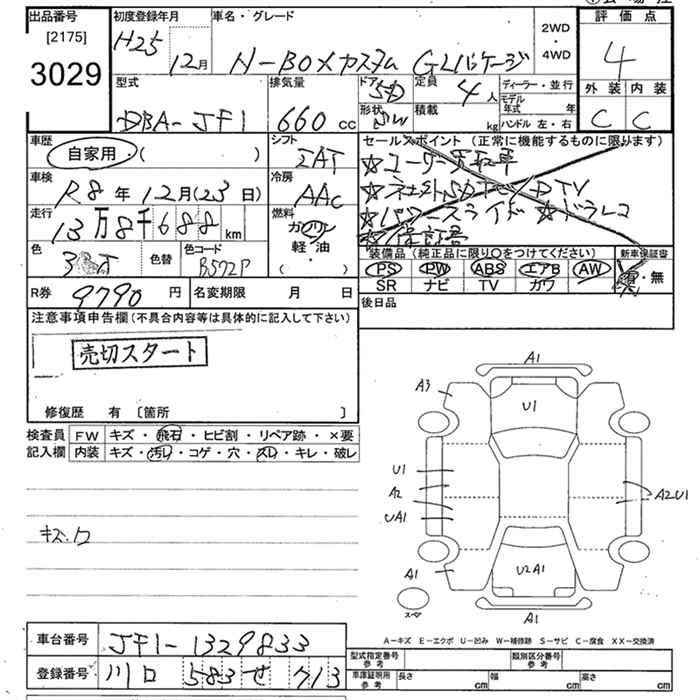 出品番号 初度登録年月 車名・グレード
[2175]
3029
H25 12月 N-BOXカスタム GLパッケージ
2WD
・
4WD
評価点
4
外装 内装
C C
型式 排気量 ドア 定員 ディーラー・並行
DBA-JF1 660 cc 5D 4人
モデル年式 年
形状 積載 kg ハンドル 左・右
SW
車歴 シフト セールスポイント (正常に機能するものに限ります)
自家用・( )
車検 冷房
R8年12月(23日) AAC
走行 燃料
13万8千688km ガソリン
軽・油
( )
★パワースライド ★ドラレコ
色 色替 色コード
B572P
装備品(純正品に限り〇をつけてください) 新車保証書
PS PW ABS エアB AW
SR ナビ TV カワ
有・無
R券 9790 円 名変期限 月 日
後日品
注意事項申告欄(不具合内容等は具体的に記入して下さい)
売切スタート
修復歴 有 〔箇所 〕
検査員 FW キズ・飛石・ヒビ割・リペア跡・×要
記入欄 内装 キズ・汚レ・コゲ・穴・スレ・キレ・破レ
キズ・ワ
A1
A3
U1
U1
A2
UA1
A2U1
A1
U2A1
A1
A−キズ E−エクボ U−凹み W−補修跡 S−サビ C−腐食 XX−交換済
車台番号 JF1-1329833
登録番号 川口 583 せ 713
型式指定番号 参考 類別区分番号 参考
車庫証明用 参考 長さ cm 幅 cm 高さ cm